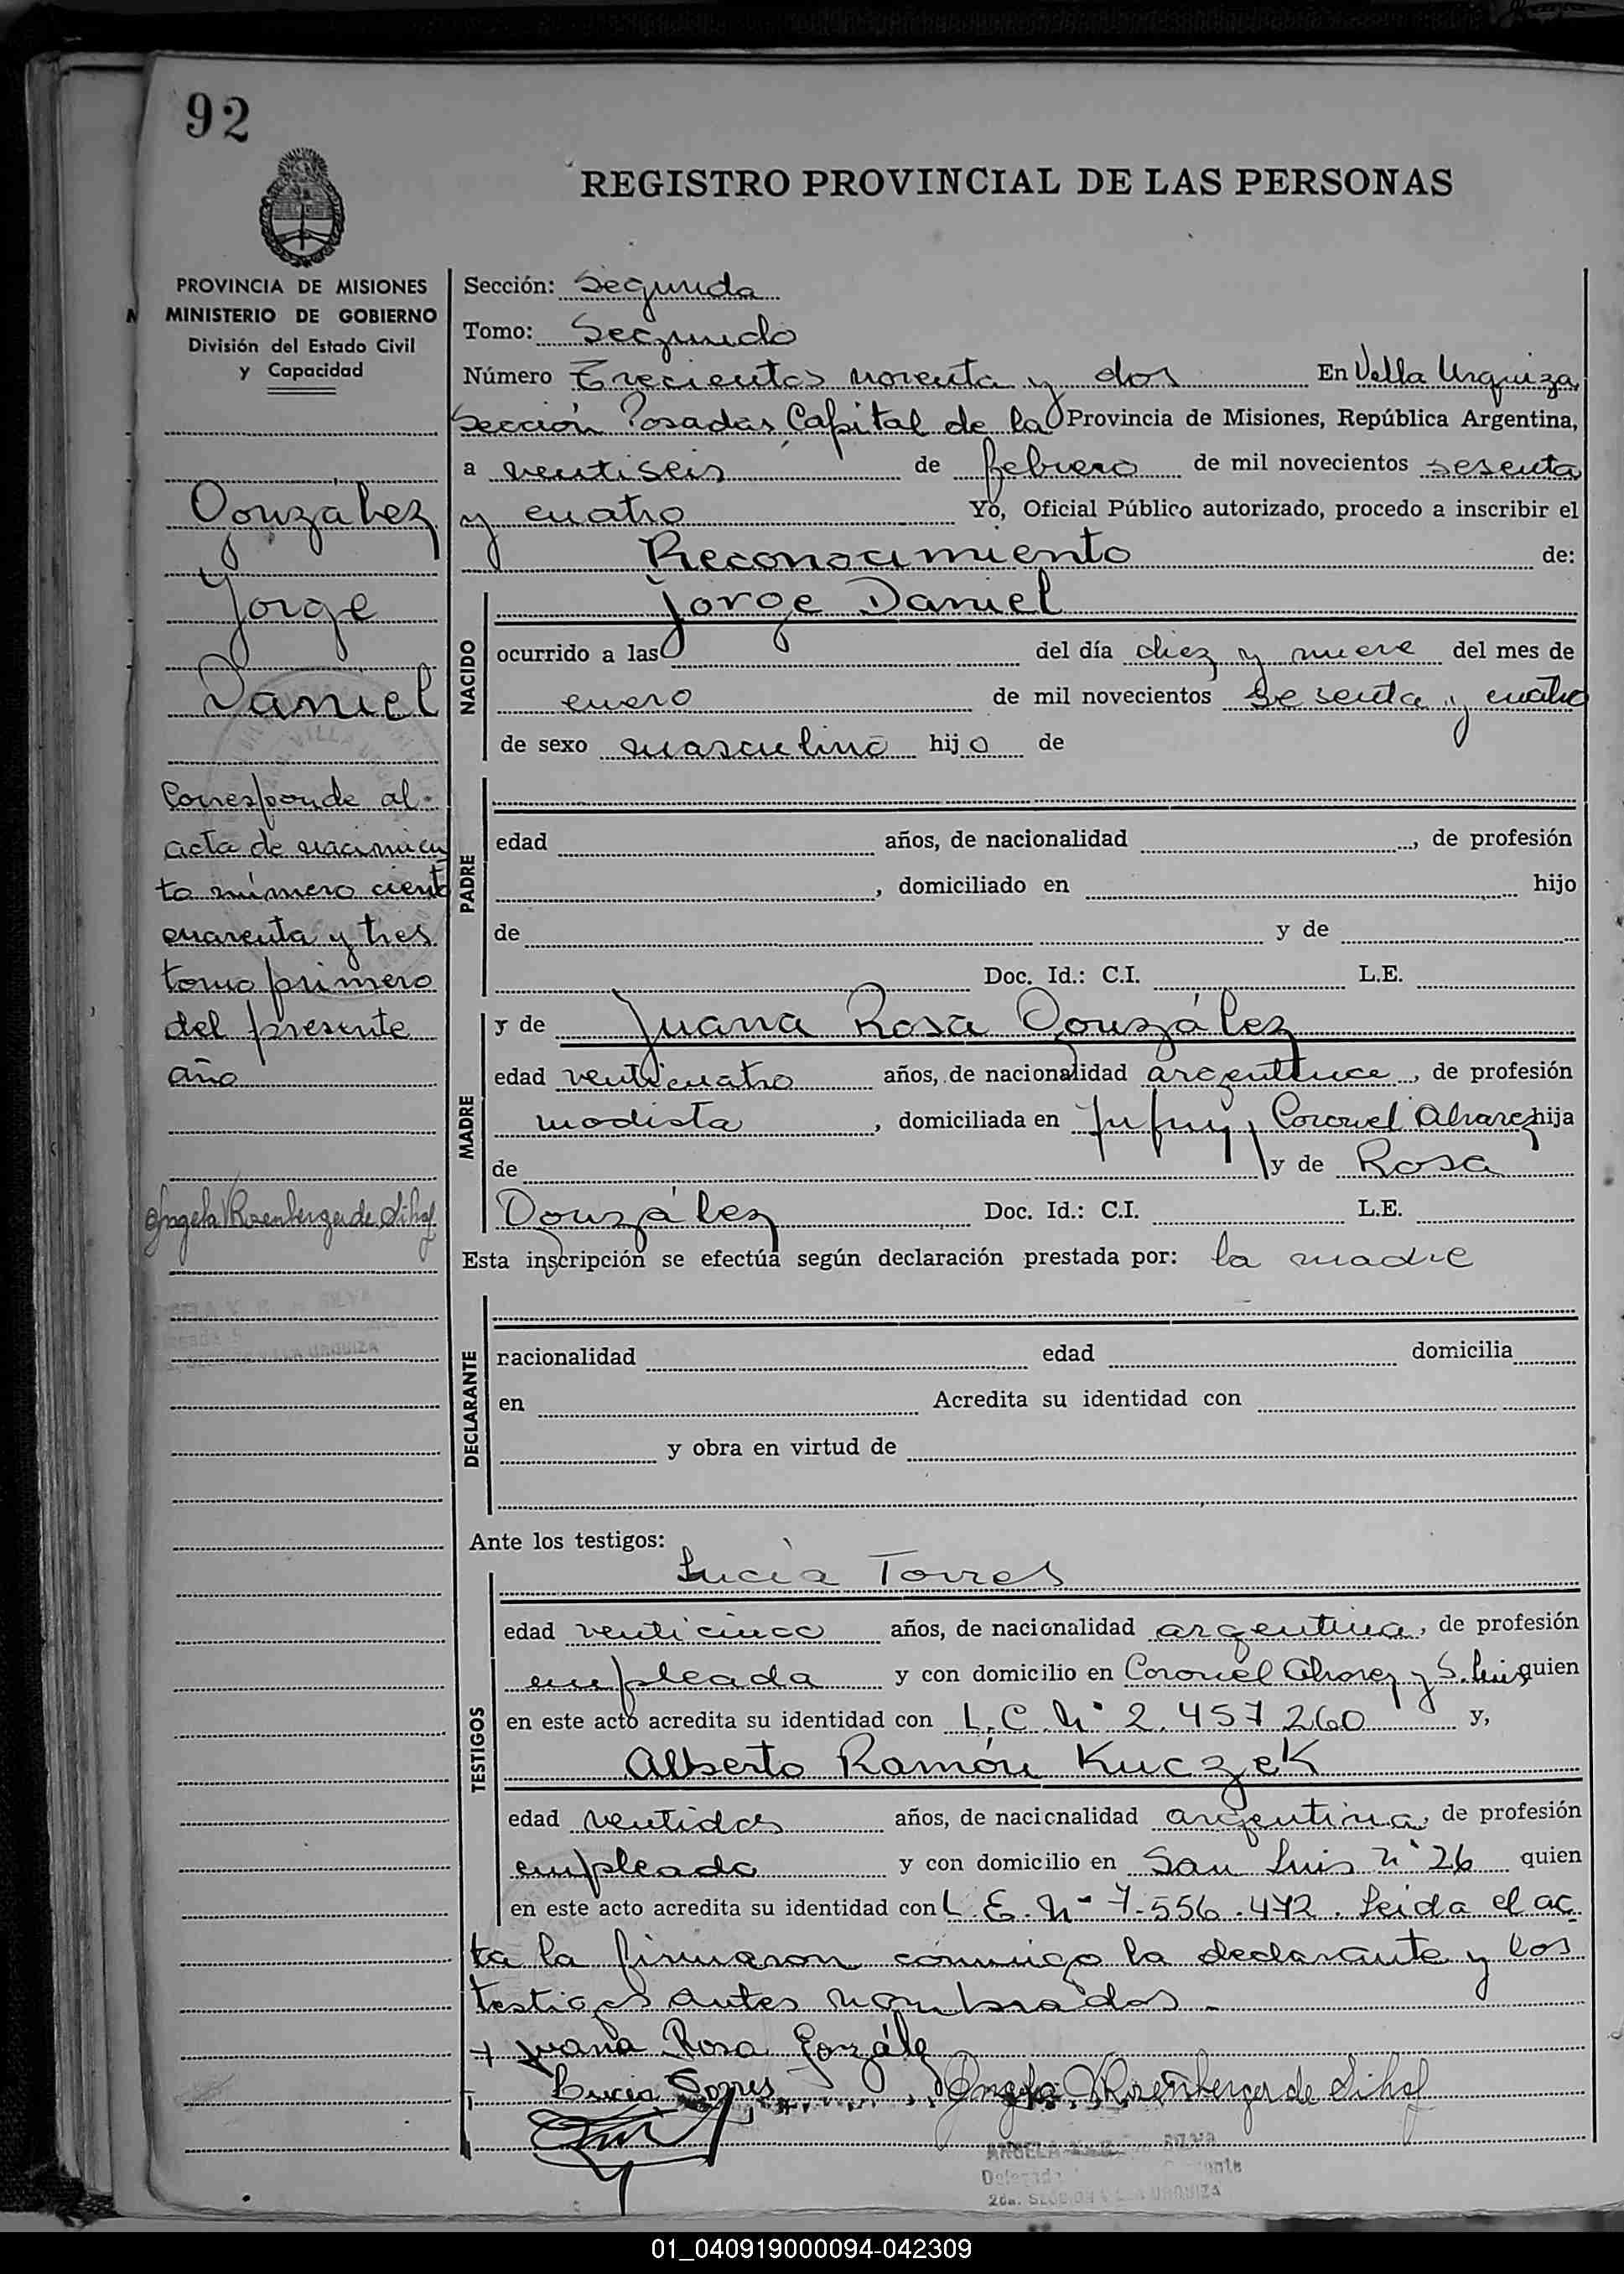 92
REGISTRO PROVINCIAL DE LAS PERSONAS
PROVINCIA DE MISIONES
MINISTERIO DE GOBIERNO
División del Estado Civil
y Capacidad
González
Jorge
Daniel
Corresponde al
acta de nacimien
to número ciento
cuarenta y tres
tomo primero
del presente
año
Sección: Segunda
Tomo: Segundo
Número Trecientos noventa y dos En Villa Urquiza,
Sección Posadas, Capital de la Provincia de Misiones, República Argentina,
a ventiseis de febrero de mil novecientos sesenta
y cuatro Yo, Oficial Público autorizado, procedo a inscribir el
Reconocimiento de:
NACIDO
Jorge Daniel
ocurrido a las del día diez y nueve del mes de
enero de mil novecientos sesenta y cuatro
de sexo masculino hijo de
PADRE
edad años, de nacionalidad , de profesión
, domiciliado en hijo
de y de
Doc. Id.: C.I. L.E.
MADRE
y de Juana Rosa González
edad venticuatro años, de nacionalidad argentina, de profesión
modista, domiciliada en Jujuy y Coronel Alvarez hija
de y de Rosa
González Doc. Id.: C.I. L.E.
Esta inscripción se efectúa según declaración prestada por: la madre
DECLARANTE
nacionalidad edad domicilia
en Acredita su identidad con
y obra en virtud de
Ante los testigos:
TESTIGOS
Lucía Torres
edad venticinco años, de nacionalidad argentina, de profesión
empleada y con domicilio en Coronel Alvarez y S. Luis, quien
en este acto acredita su identidad con L.C. Nº 2.457.260 y,
Alberto Ramón Kuczek
edad ventidos años, de nacionalidad argentina, de profesión
empleado y con domicilio en San Luis Nº 26 quien
en este acto acredita su identidad con L.E. Nº 7.556.472. Leida el ac
ta la firmaron conmigo la declarante y los
testigos antes nombrados.-
+ Juana Rosa González
Lucia Torres
2da. SECCION VILLA URQUIZA
01_040919000094-042309